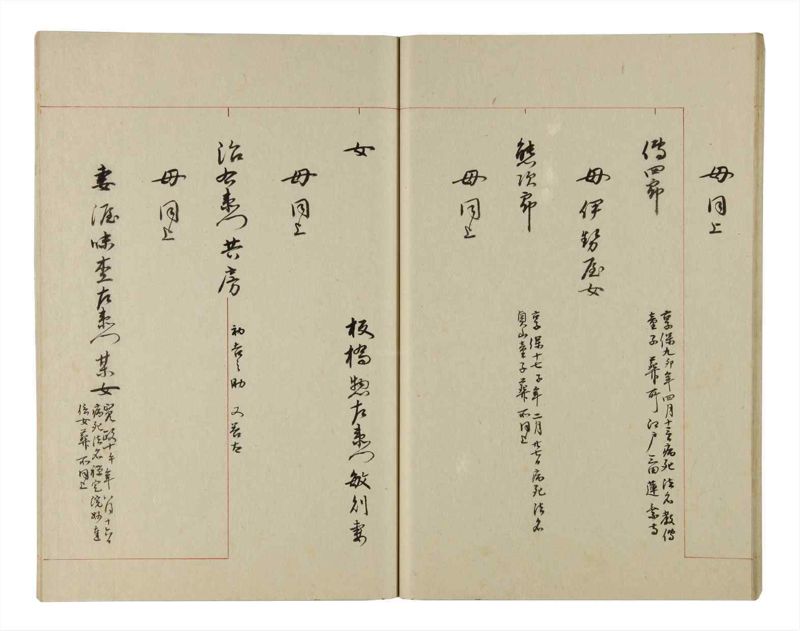 母同上
傳四郎
享保九卯年四月十三日病死法名教傳
童子葬所江戸三田蓮乗寺
母伊勢屋女
熊次郎
享保十七子年二月廿七日病死法名
奥山童子葬所同上
母同上
女
板橋惣左衛門敏別妻
母同上
治右衛門共房
初吉之助 又善左
母同上
妻渥味杢左衛門某女
寛政十午年八月十六日
病死法名 院妙蓮
信女葬所同上